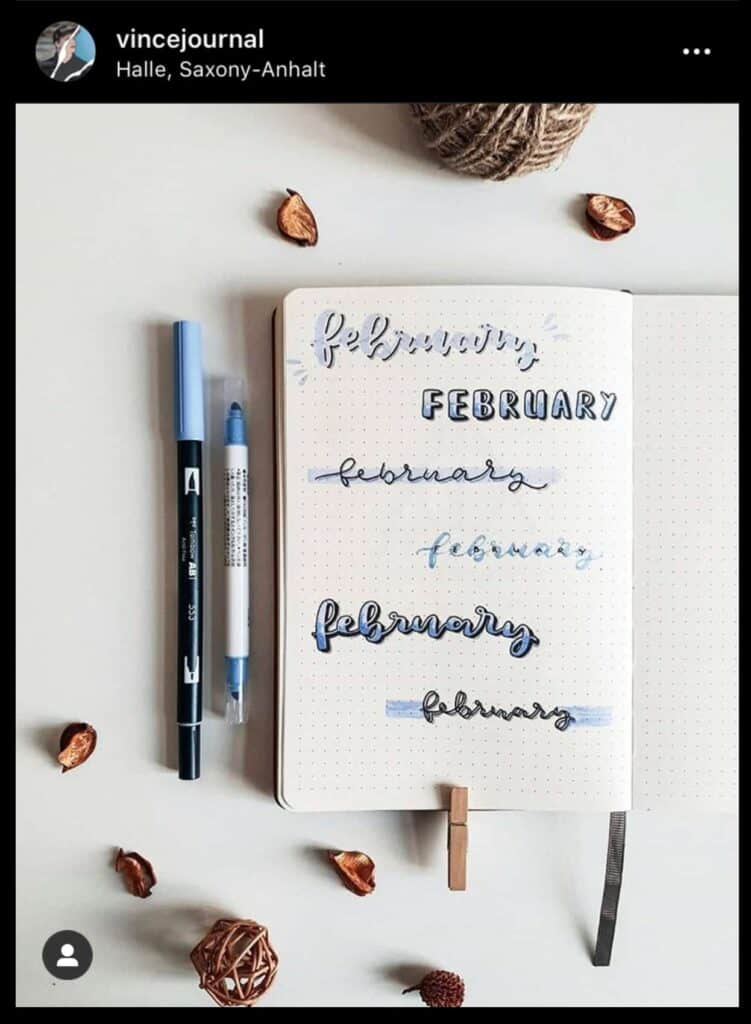 vincejournal
Halle, Saxony-Anhalt
february
FEBRUARY
february
february
february
february
Tombow ABT
553